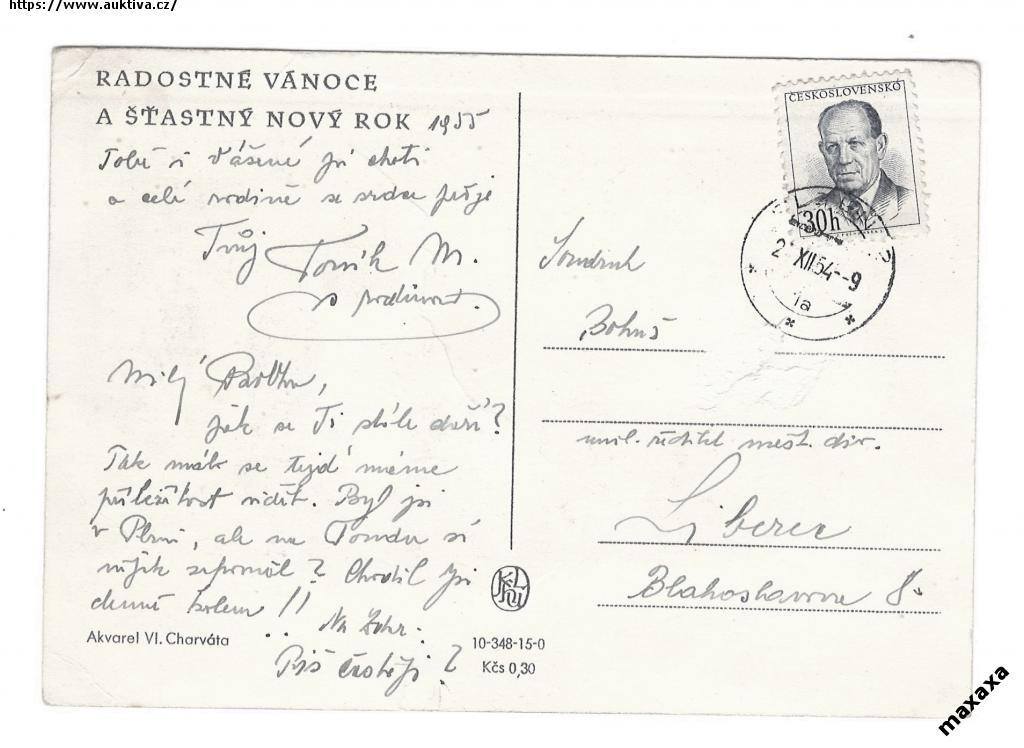 https://www.auktiva.cz/
RADOSTNÉ VÁNOCE
A ŠŤASTNÝ NOVÝ ROK 1955
Tobě i Vážené pí choti
a celé rodině ze srdce přeje
Tvůj Toník M.
s rodinou.
Milý
jak se Ti stále daří?
Tak málo se teď máme
příležitost vidět. Byl jsi
v Plzni, ale na Tondu si
nějak zapomněl? Chodil jsi
denně kolem!!
Piš častěji?
Akvarel Vl. Charváta
10-348-15-0
Kčs 0,30
ČESKOSLOVENSKO
30h
XII.54--9
1a
Soudruh
Bohuš
uměl. ředitel měst. div.
Liberec
Blahoslavova 8.
maxaxa